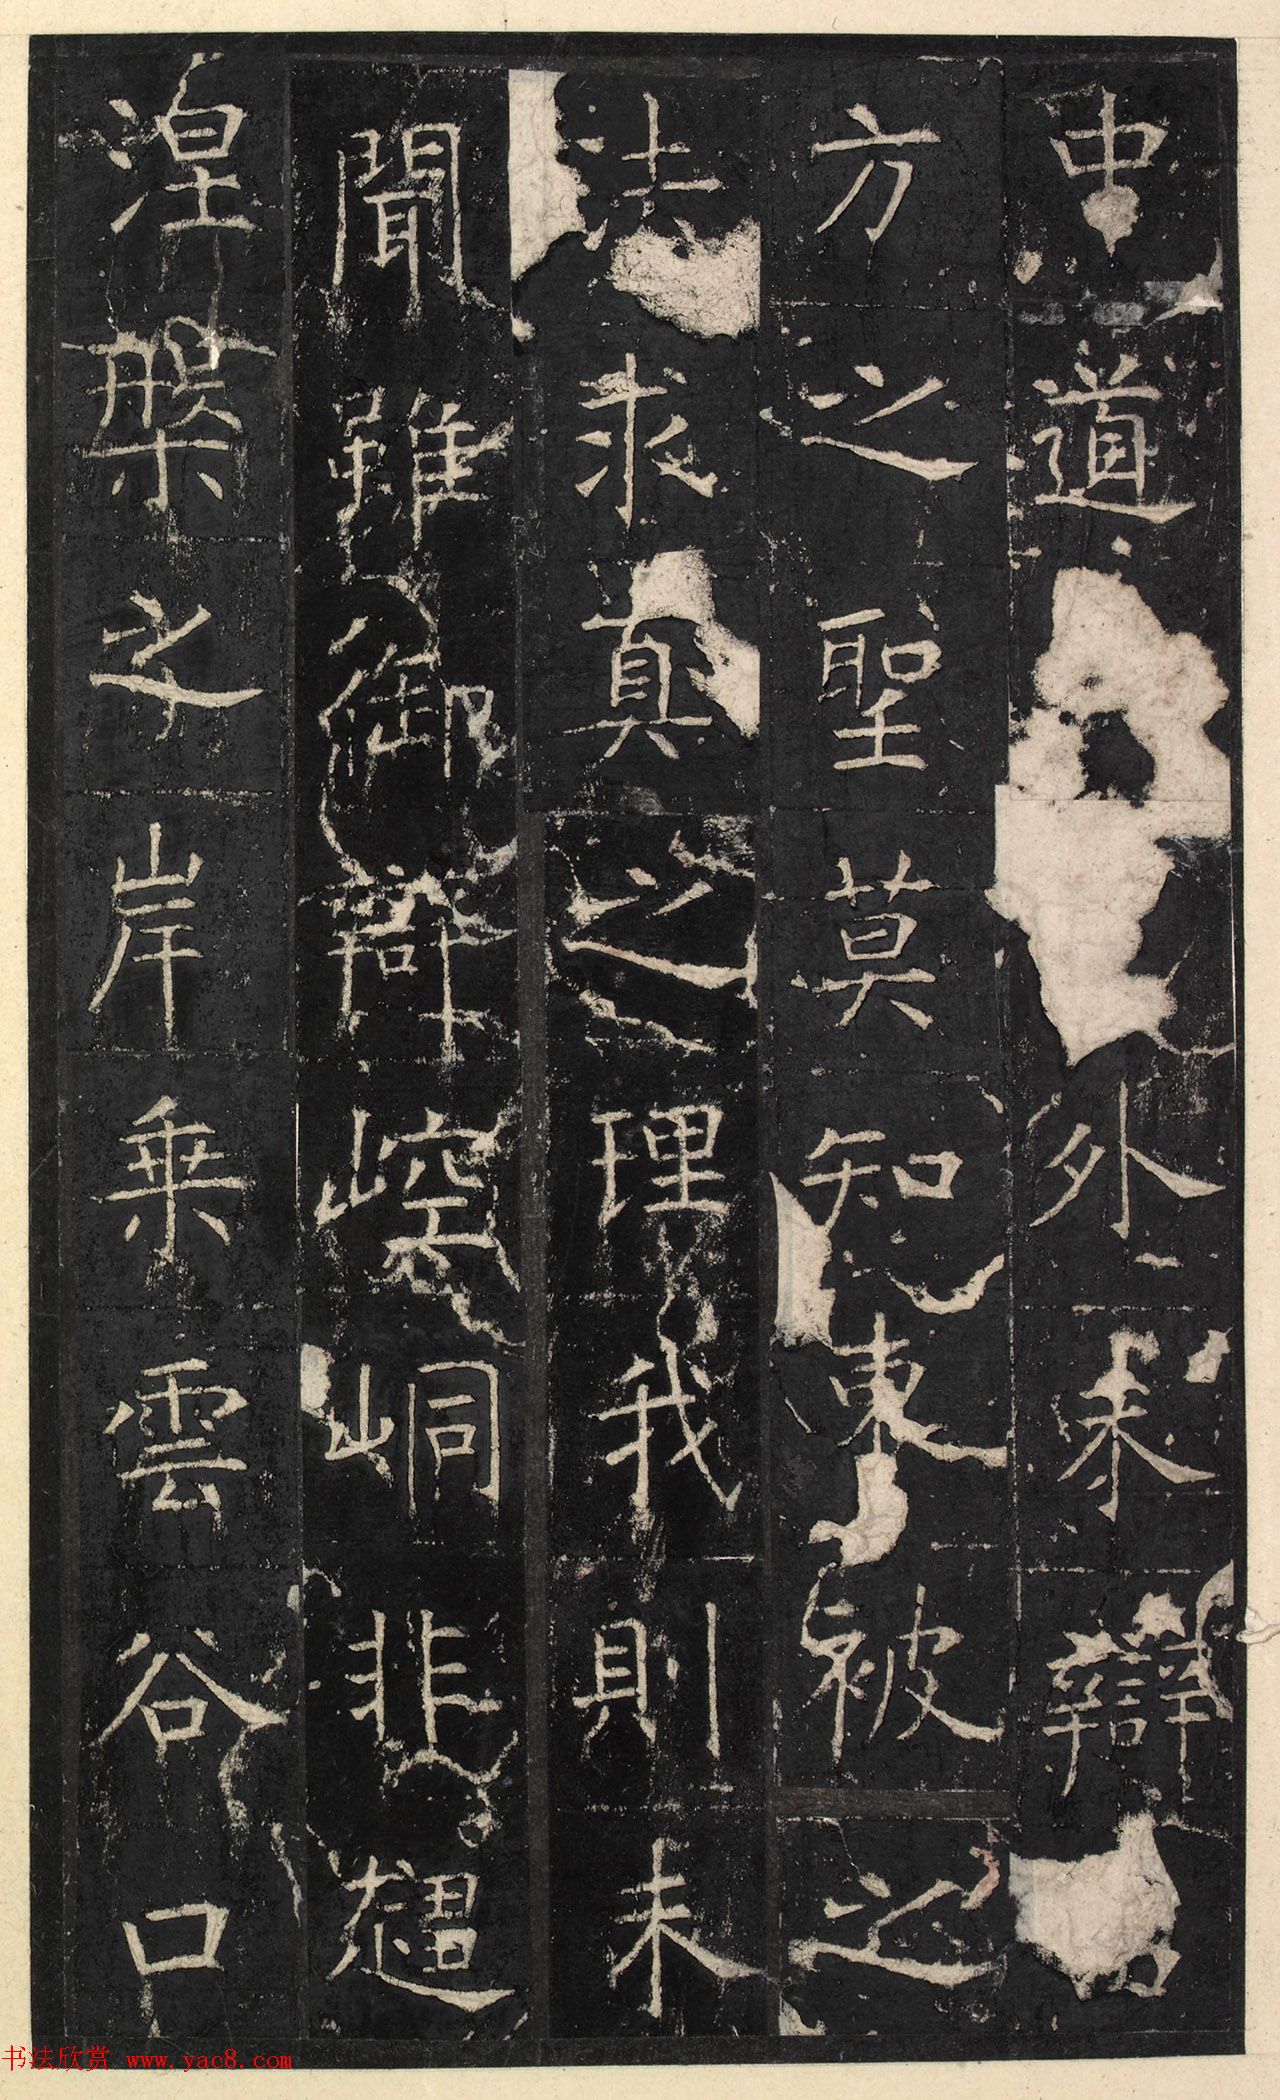 中道外未辯
方之聖莫知東被之
法求真之理我則未
聞雖御辯崆峒非趨
湼槃之岸乗雲谷口
书法欣赏 www.yac8.com